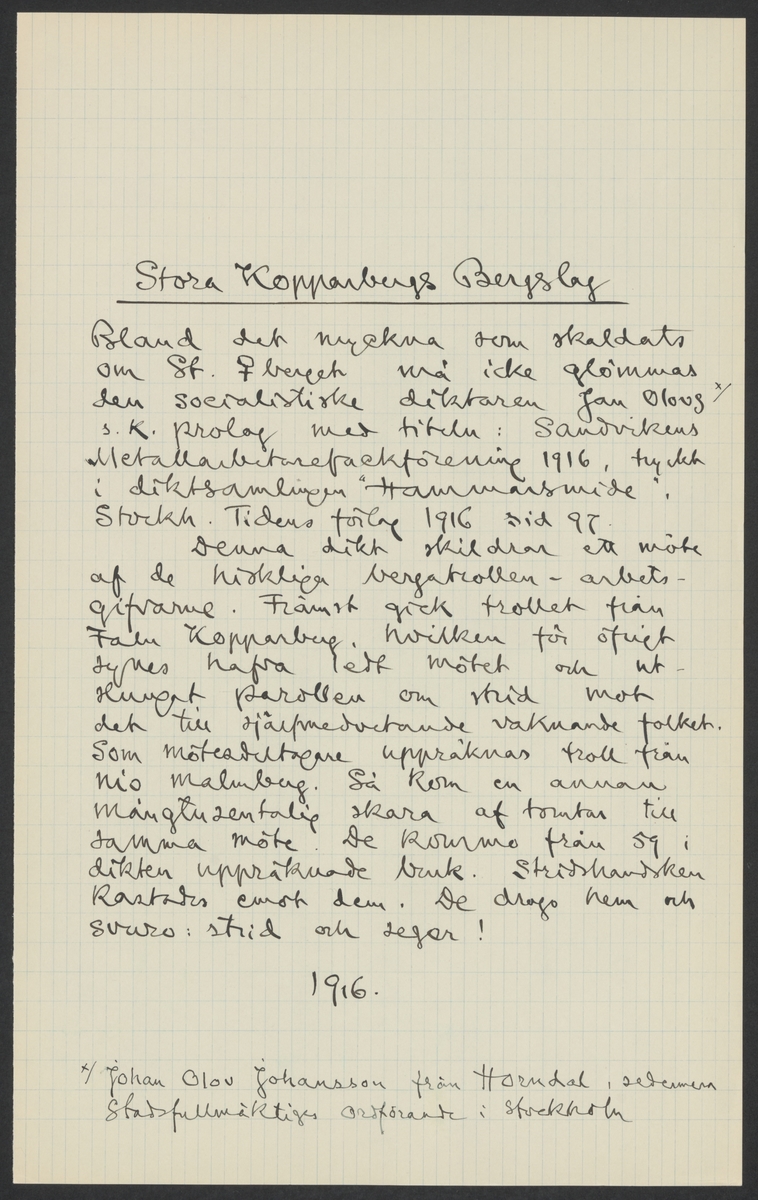 Stora Kopparbergs Bergslag
Bland det myckna som skaldats
om St. ♀berget må icke glömmas
den socialistiske diktaren Jan Olovs x/
s.k. prolog med titeln: Sandvikens
Metallarbetarefackförening 1916, tryckt
i diktsamlingen "Hammarsmide",
Stockh. Tidens förlag 1916 sid 97.
Denna dikt skildrar ett möte
af de hiskliga bergatrollen - arbets-
gifvarne. Främst gick trollet från
Falu Kopparberg, hvilken för öfrigt
synes hafva ledt mötet och ut-
slungat parollen om strid mot
det till självmedvetande vaknande folket.
Som mötesdeltagare uppräknas troll från
nio malmberg. Så kom en annan
mångtusentalig skara af tomtar till
samma möte. De kommo från 59 i
dikten uppräknade bruk. Stridshandsken
kastades emot dem. De drogo hem och
svuro: strid och seger!
1916.
x/ Johan Olov Johansson från Horndal, sedermera
Stadsfullmäktiges ordförande i Stockholm